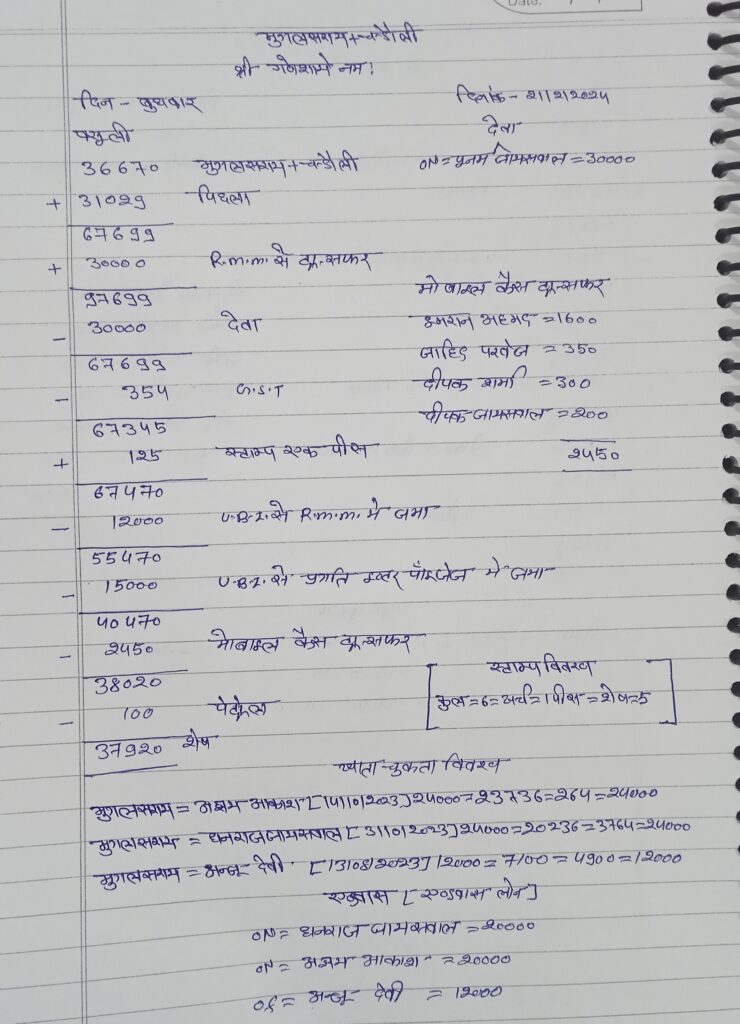 Date:
मुगलसराय+चन्दौली
श्री गणेशाये नमः
दिन - बुधवार
दिनांक - 21/2/2024
वसूली
देवा
36670 मुगलसराय+चन्दौली
ON = पूनम जायसवाल = 30000
+ 31029 पिछला
67699
+ 30000 R.m.m. से ट्रान्सफर
97699
मोबाइल कैस ट्रान्सफर
- 30000 देवा
इमरान अहमद = 1600
67699
जाहिद परवेज = 350
- 354 G.S.T
दीपक शर्मा = 300
67345
दीपक जायसवाल = 200
+ 125 स्टाम्प एक पीस
2450
67470
- 12000 U.B.I. से R.m.m. मे जमा
55470
- 15000 U.B.I. से प्रगति इन्टर प्राईजेज मे जमा
40470
- 2450 मोबाइल कैस ट्रान्सफर
38020
स्टाम्प विवरण
- 100 पेट्रोल
[कुल=6=खर्च=1पीस=शेष=5]
37920 शेष
खाता-चुकता विवरण
मुगलसराय = अक्षय आकाश [14/10/2023] 24000=23736=264=24000
मुगलसराय = धनराज जायसवाल [31/10/2023] 24000=20236=3764=24000
मुगलसराय = अन्जू देवी [13/08/2023] 12000=7100=4900=12000
एडवांस [एडवांस लोन]
ON = धनराज जायसवाल = 20000
ON = अक्षय आकाश = 20000
OL = अन्जू देवी = 12000